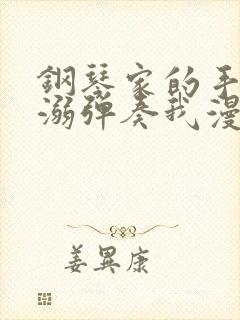 鋼琴家的手
溺彈奏我漫
姜異康